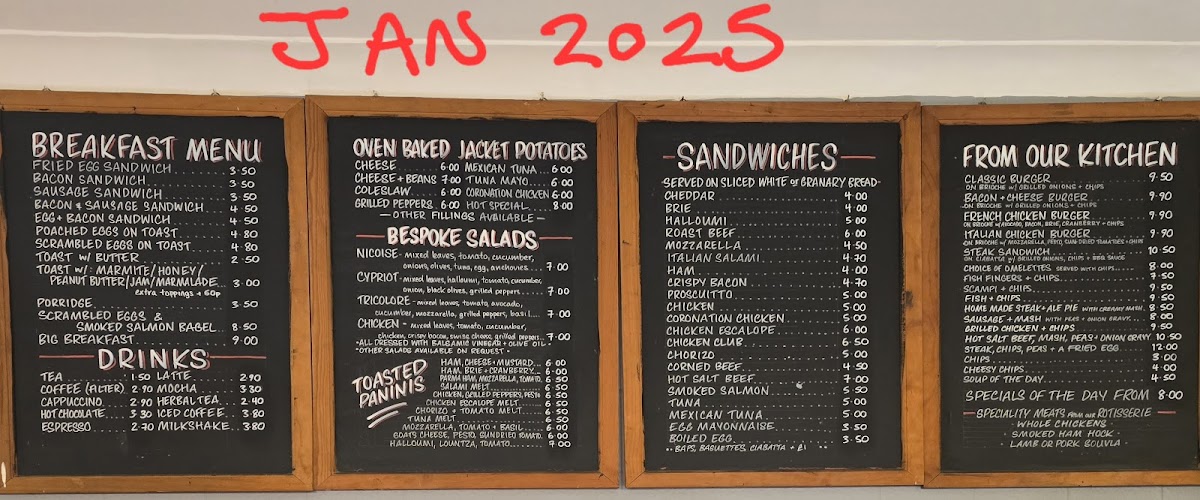 JAN 2025
BREAKFAST MENU
FRIED EGG SANDWICH 3.50
BACON SANDWICH 3.50
SAUSAGE SANDWICH 3.50
BACON & SAUSAGE SANDWICH 4.50
EGG + BACON SANDWICH 4.50
POACHED EGGS ON TOAST 4.80
SCRAMBLED EGGS ON TOAST 4.80
TOAST W/ BUTTER 2.50
TOAST W/: MARMITE/HONEY/
PEANUT BUTTER/JAM/MARMALADE 3.00
extra toppings + 60p
PORRIDGE 3.50
SCRAMBLED EGGS &
SMOKED SALMON BAGEL 8.50
BIG BREAKFAST 9.00
DRINKS
TEA 1.50 LATTE 2.90
COFFEE (FILTER) 2.90 MOCHA 3.30
CAPPUCCINO 2.90 HERBAL TEA 2.40
HOT CHOCOLATE 3.30 ICED COFFEE 3.80
ESPRESSO 2.70 MILKSHAKE 3.80
OVEN BAKED JACKET POTATOES
CHEESE 6.00 MEXICAN TUNA 6.00
CHEESE + BEANS 7.00 TUNA MAYO 6.00
COLESLAW 6.00 CORONATION CHICKEN 6.00
GRILLED PEPPERS 6.00 HOT SPECIAL 8.00
— OTHER FILLINGS AVAILABLE —
BESPOKE SALADS
NICOISE - mixed leaves, tomato, cucumber,
onions, olives, tuna, egg, anchovies 7.00
CYPRIOT - mixed leaves, halloumi, tomato, cucumber,
onion, black olives, grilled peppers 7.00
TRICOLORE - mixed leaves, tomato, avocado,
cucumber, mozzarella, grilled peppers, basil 7.00
CHICKEN - mixed leaves, tomato, cucumber,
chicken, crispy bacon, swiss cheese, grilled peppers 7.00
• ALL DRESSED WITH BALSAMIC VINEGAR + OLIVE OIL •
• OTHER SALADS AVAILABLE ON REQUEST •
TOASTED
PANINIS
HAM, CHEESE + MUSTARD 6.00
HAM, BRIE + CRANBERRY 6.00
PARMA HAM, MOZZARELLA, TOMATO 6.50
SALAMI MELT 6.50
CHICKEN, GRILLED PEPPERS, PESTO 6.50
CHICKEN ESCALOPE MELT 6.50
CHORIZO + TOMATO MELT 6.50
TUNA MELT 6.50
MOZZARELLA, TOMATO + BASIL 6.00
GOATS CHEESE, PESTO, SUNDRIED TOMATO 6.00
HALLOUMI, LOUNTZA, TOMATO 7.00
SANDWICHES
SERVED ON SLICED WHITE or GRANARY BREAD
CHEDDAR 4.00
BRIE 4.00
HALLOUMI 5.00
ROAST BEEF 6.00
MOZZARELLA 4.50
ITALIAN SALAMI 4.70
HAM 4.00
CRISPY BACON 4.70
PROSCUITTO 5.00
CHICKEN 5.00
CORONATION CHICKEN 5.00
CHICKEN ESCALOPE 6.00
CHICKEN CLUB 6.50
CHORIZO 5.00
CORNED BEEF 4.50
HOT SALT BEEF 7.00
SMOKED SALMON 5.50
TUNA 5.00
MEXICAN TUNA 5.00
EGG MAYONNAISE 3.50
BOILED EGG 3.50
•• BAPS, BAGUETTES, CIABATTA + £1 ••
FROM OUR KITCHEN
CLASSIC BURGER 9.50
ON BRIOCHE W/ GRILLED ONIONS + CHIPS
BACON + CHEESE BURGER 9.90
ON BRIOCHE W/ GRILLED ONIONS + CHIPS
FRENCH CHICKEN BURGER 9.90
ON BRIOCHE W/ AVOCADO, BACON, BRIE, CRANBERRY + CHIPS
ITALIAN CHICKEN BURGER 9.90
ON BRIOCHE W/ MOZZARELLA, PESTO, SUN-DRIED TOMATOES + CHIPS
STEAK SANDWICH 10.50
ON CIABATTA W/ GRILLED ONIONS, CHIPS + BBQ SAUCE
CHOICE OF OMELETTES SERVED WITH CHIPS 8.00
FISH FINGERS + CHIPS 7.50
SCAMPI + CHIPS 9.50
FISH + CHIPS 9.50
HOME MADE STEAK + ALE PIE WITH CREAMY MASH 8.50
SAUSAGE + MASH WITH PEAS + ONION GRAVY 8.00
GRILLED CHICKEN + CHIPS 9.50
HOT SALT BEEF, MASH, PEAS + ONION GRAVY 10.50
STEAK, CHIPS, PEAS + A FRIED EGG 12.00
CHIPS 3.00
CHEESY CHIPS 4.00
SOUP OF THE DAY 4.50
SPECIALS OF THE DAY FROM 8.00
— SPECIALITY MEATS FROM OUR ROTISSERIE —
• WHOLE CHICKENS •
• SMOKED HAM HOCK •
• LAMB OR PORK SOUVLA •